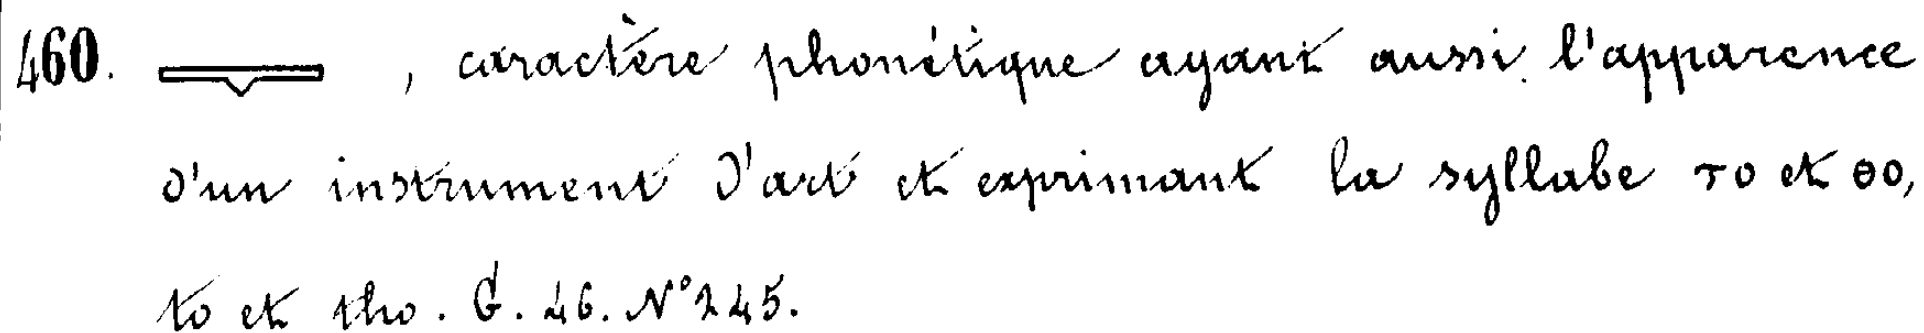 460. , caractère phonétique ayant aussi l'apparence
d'un instrument d'art et exprimant la syllabe ⲧⲟ et ⲑⲟ,
to et tho. G. 46. N° 245.